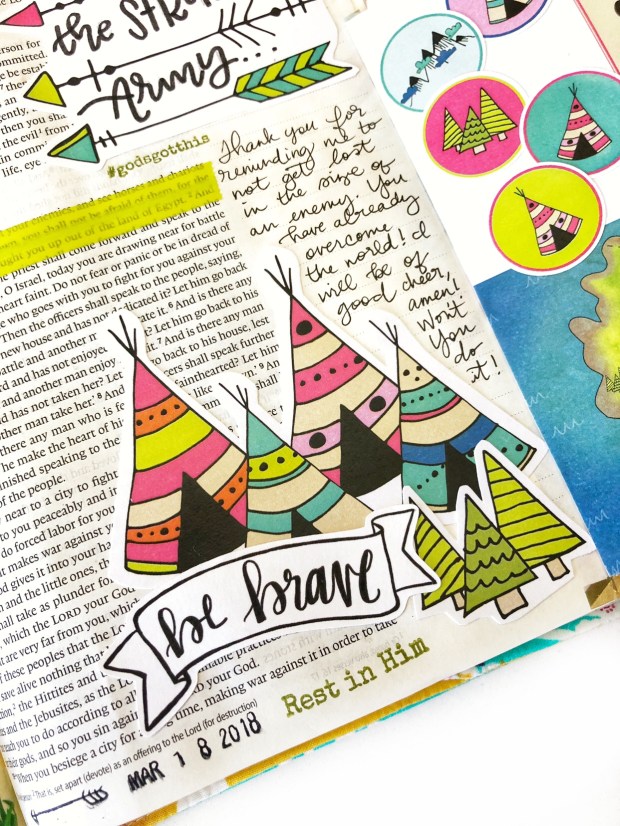 the
Army...
#godsgotthis
Thank you for
reminding me to
not get lost
in the size of
an enemy. You
have already
overcome
the world! I
will be of
good cheer,
amen!
Won't
You
do
it!
erson for
committed.
life, eye
your enemies, and see horses and chariots
you shall not be afraid of them, for the
ught you up out of the land of Egypt. And
priest shall come forward and speak to the
O Israel, today you are drawing near for battle
heart faint. Do not fear or panic or be in dread of
who goes with you to fight for you against your
Then the officers shall speak to the people, saying,
new house and has not dedicated it? Let him go back
battle and another m it. 6 And is there any
rd and has not enjoyed go back to his house, lest
and another man enjoy shall speak further
d has not taken her? Let fainthearted? Let him
other man take her.
there any man who is fe
he make the heart of his
inished speaking to the
of the people.
near to a city to fight
to you peaceably and it
do forced labor for you
it makes war against y
od gives it into your ha
and the little ones, th
shall take as plunder fo
which the LORD your God
are very far from you, which
f these peoples that the Lo
save alive nothing that
the Hittites and
and the Jebusites, as the Lo
you to do according to all practices
their gods, and so you sin again your God.
When you besiege a city for a long time, making war against it in order to take
That is, set apart (devote) as an offering to the Lord (for destruction)
be brave
Rest in Him
MAR 18 2018